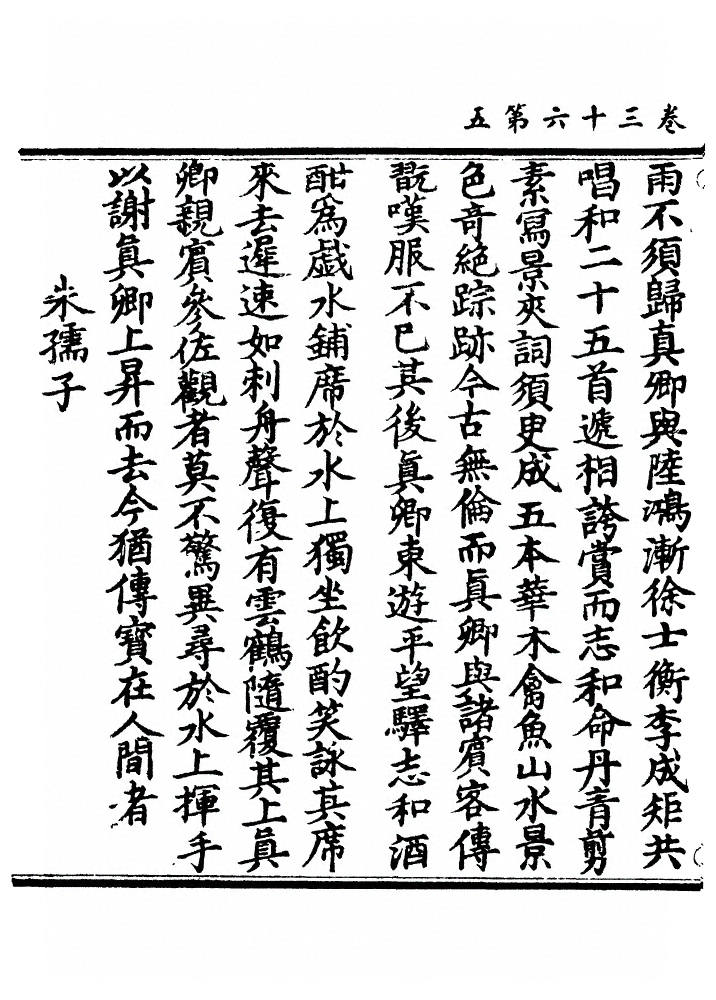 卷三十六第五
雨不須歸真卿與陸鴻漸徐士衡李成矩共
唱和二十五首遞相誇賞而志和命丹青剪
素寫景夾詞須臾成五本華木禽魚山水景
色奇絶踪跡今古無倫而真卿與諸賓客傳
翫嘆服不已其後真卿東遊平望驛志和酒
酣爲戯水鋪席於水上獨坐飲酌笑詠其席
來去遲速如刺舟聲復有雲鶴隨覆其上真
卿親賓參佐觀者莫不驚異尋於水上揮手
以謝真卿上昇而去今猶傳寳在人間者
朱孺子